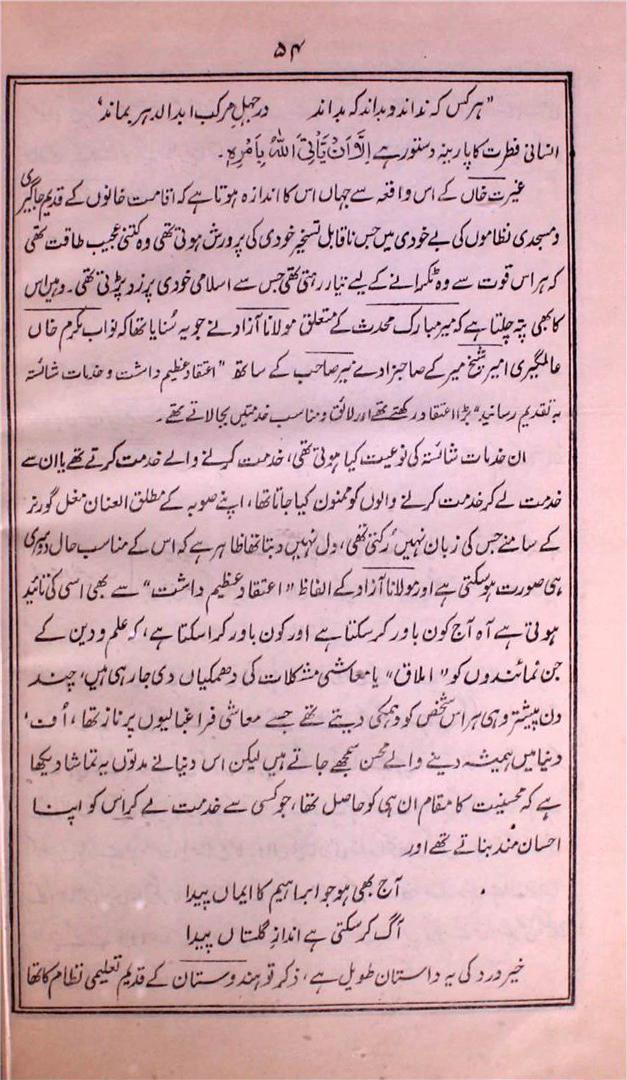 ۵۴
"ہر کس کہ نداند و بداند کہ بداند در جہل مرکب ابد الدہر بماند"
انسانی فطرت کا پارینہ دستور ہے اِلَّا اَنْ یَّاْتِیَ اللّٰہُ بِاَمْرِہٖ۔
غیرت خاں کے اس واقعہ سے جہاں اس کا اندازہ ہوتا ہے کہ اقامت خانوں کے قدیم جاگیری
و مسجدی نظاموں کی بے خودی میں جس ناقابل تسخیر خودی کی پرورش ہوتی تھی وہ کتنی عجیب طاقت تھی
کہ ہر اس قوت سے وہ ٹکرانے کے لیے تیار رہتی تھی جس سے اسلامی خودی پر زد پڑتی تھی۔ وہیں اس
کا بھی پتہ چلتا ہے کہ میر مبارک محدث کے متعلق مولانا آزاد نے جو یہ سُنایا تھا کہ نواب مکرم خاں
عالمگیری امیر شیخ میر کے صاحبزادے میر صاحب کے ساتھ "اعتقاد عظیم داشت و خدمات شائستہ
بہ تقدیم رسانید" بڑا اعتقاد رکھتے تھے اور لائق و مناسب خدمتیں بجا لاتے تھے۔
ان خدمات شائستہ کی نوعیت کیا ہوتی تھی، خدمت کرنے والے خدمت کرتے تھے یا ان سے
خدمت لے کر خدمت کرنے والوں کو ممنون کیا جاتا تھا، اپنے صوبہ کے مطلق العنان مغل گورنر
کے سامنے جس کی زبان نہیں رُکتی تھی، دل نہیں دبتا تھا ظاہر ہے کہ اس کے مناسب حال دوسری
ہی صورت ہو سکتی ہے اور مولانا آزاد کے الفاظ "اعتقاد عظیم داشت" سے بھی اسی کی تائید
ہوتی ہے آہ آج کون باور کر سکتا ہے اور کون باور کرا سکتا ہے، کہ علم و دین کے
جن نمائندوں کو "املاق" یا معاشی مشکلات کی دھمکیاں دی جا رہی ہیں، چند
دن پیشتر وہی ہر اس شخص کو دھمکی دیتے تھے جسے معاشی فراغبالیوں پر ناز تھا، اُف،
دنیا میں ہمیشہ دینے والے محسن سمجھے جاتے ہیں لیکن اس دنیا نے مدتوں یہ تماشا دیکھا
ہے کہ محسنیت کا مقام ان ہی کو حاصل تھا، جو کسی سے خدمت لے کر اس کو اپنا
احسان مند بناتے تھے اور
آج بھی ہو جو ابراہیم کا ایماں پیدا
آگ کر سکتی ہے انداز گلستاں پیدا
خیر درد کی یہ داستان طویل ہے، ذکر تو ہندوستان کے قدیم تعلیمی نظام کا تھا